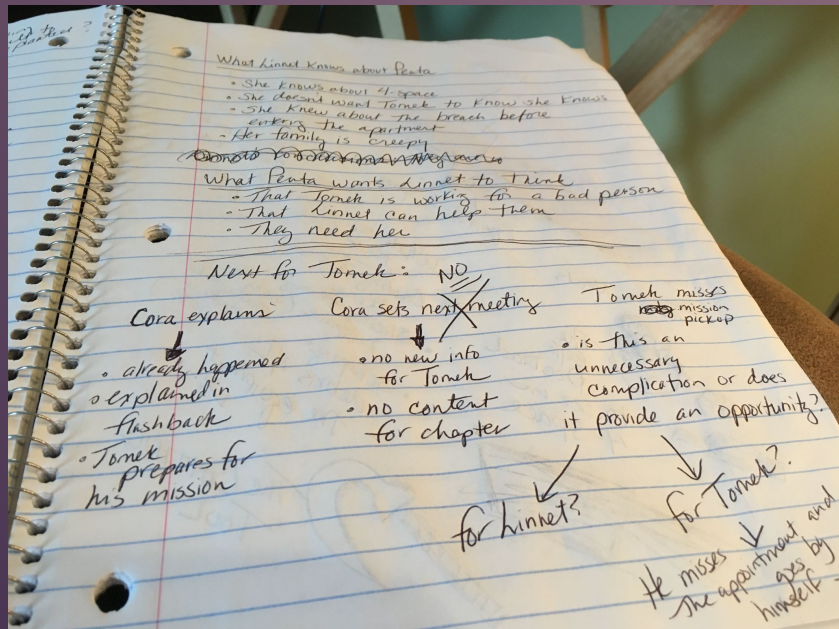 What Linnet Knows about Penta
• She knows about 4 space
• She doesn't want Tomek to know she knows
• She knew about the breach before
entering the apartment
• Her family is creepy
What Penta wants Linnet to think
• That Tomek is working for a bad person
• That Linnet can help them
• They need her
Next for Tomek:
Cora explains
• already happened
• explained in
flashback
• Tomek
prepares for
his mission
NO
Cora sets next meeting
• no new info
for Tomek
• no content
for chapter
Tomek misses
mission
pickup
• is this an
unnecessary
complication or does
it provide an opportunity?
for Linnet?
for Tomek?
He misses
the appointment and
goes by
himself